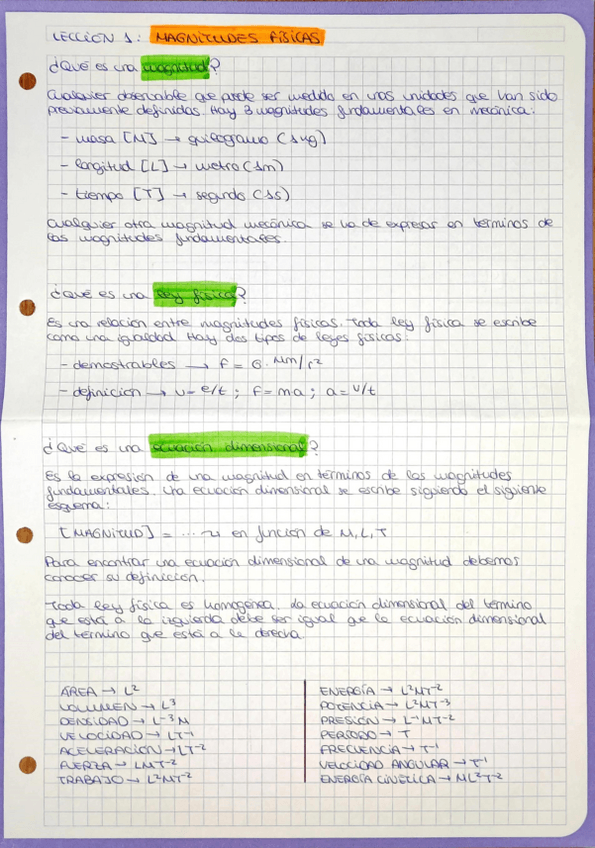 LECCIÓN 1: MAGNITUDES FÍSICAS
¿Qué es una magnitud?
Cualquier observable que puede ser medido en unas unidades que han sido
previamente definidas. Hay 3 magnitudes fundamentales en mecánica:
- masa [M] → quilogramo (1kg)
- longitud [L] → metro (1m)
- tiempo [T] → segundo (1s)
Cualquier otra magnitud mecánica se ha de expresar en términos de
las magnitudes fundamentales.
¿Qué es una ley física?
Es una relación entre magnitudes físicas. Toda ley física se escribe
como una igualdad. Hay dos tipos de leyes físicas:
- demostrables → F = G · Mm/r²
- definición → v = e/t ; F = ma ; a = v/t
¿Qué es una ecuación dimensional?
Es la expresión de una magnitud en términos de las magnitudes
fundamentales. Una ecuación dimensional se escribe siguiendo el siguiente
esquema:
[MAGNITUD] = ... ↝ en función de M, L, T
Para encontrar una ecuación dimensional de una magnitud debemos
conocer su definición.
Toda ley física es homogénea. La ecuación dimensional del término
que está a la izquierda debe ser igual qe la ecuación dimensional
del término que está a la derecha.
ÁREA → L²
VOLUMEN → L³
DENSIDAD → L⁻³M
VELOCIDAD → LT⁻¹
ACELERACIÓN → LT⁻²
FUERZA → LMT⁻²
TRABAJO → L²MT⁻²
ENERGÍA → L²MT⁻²
POTENCIA → L²MT⁻³
PRESIÓN → L⁻¹MT⁻²
PERÍODO → T
FRECUENCIA → T⁻¹
VELOCIDAD ANGULAR → T⁻¹
ENERGÍA CINÉTICA → ML²T⁻²